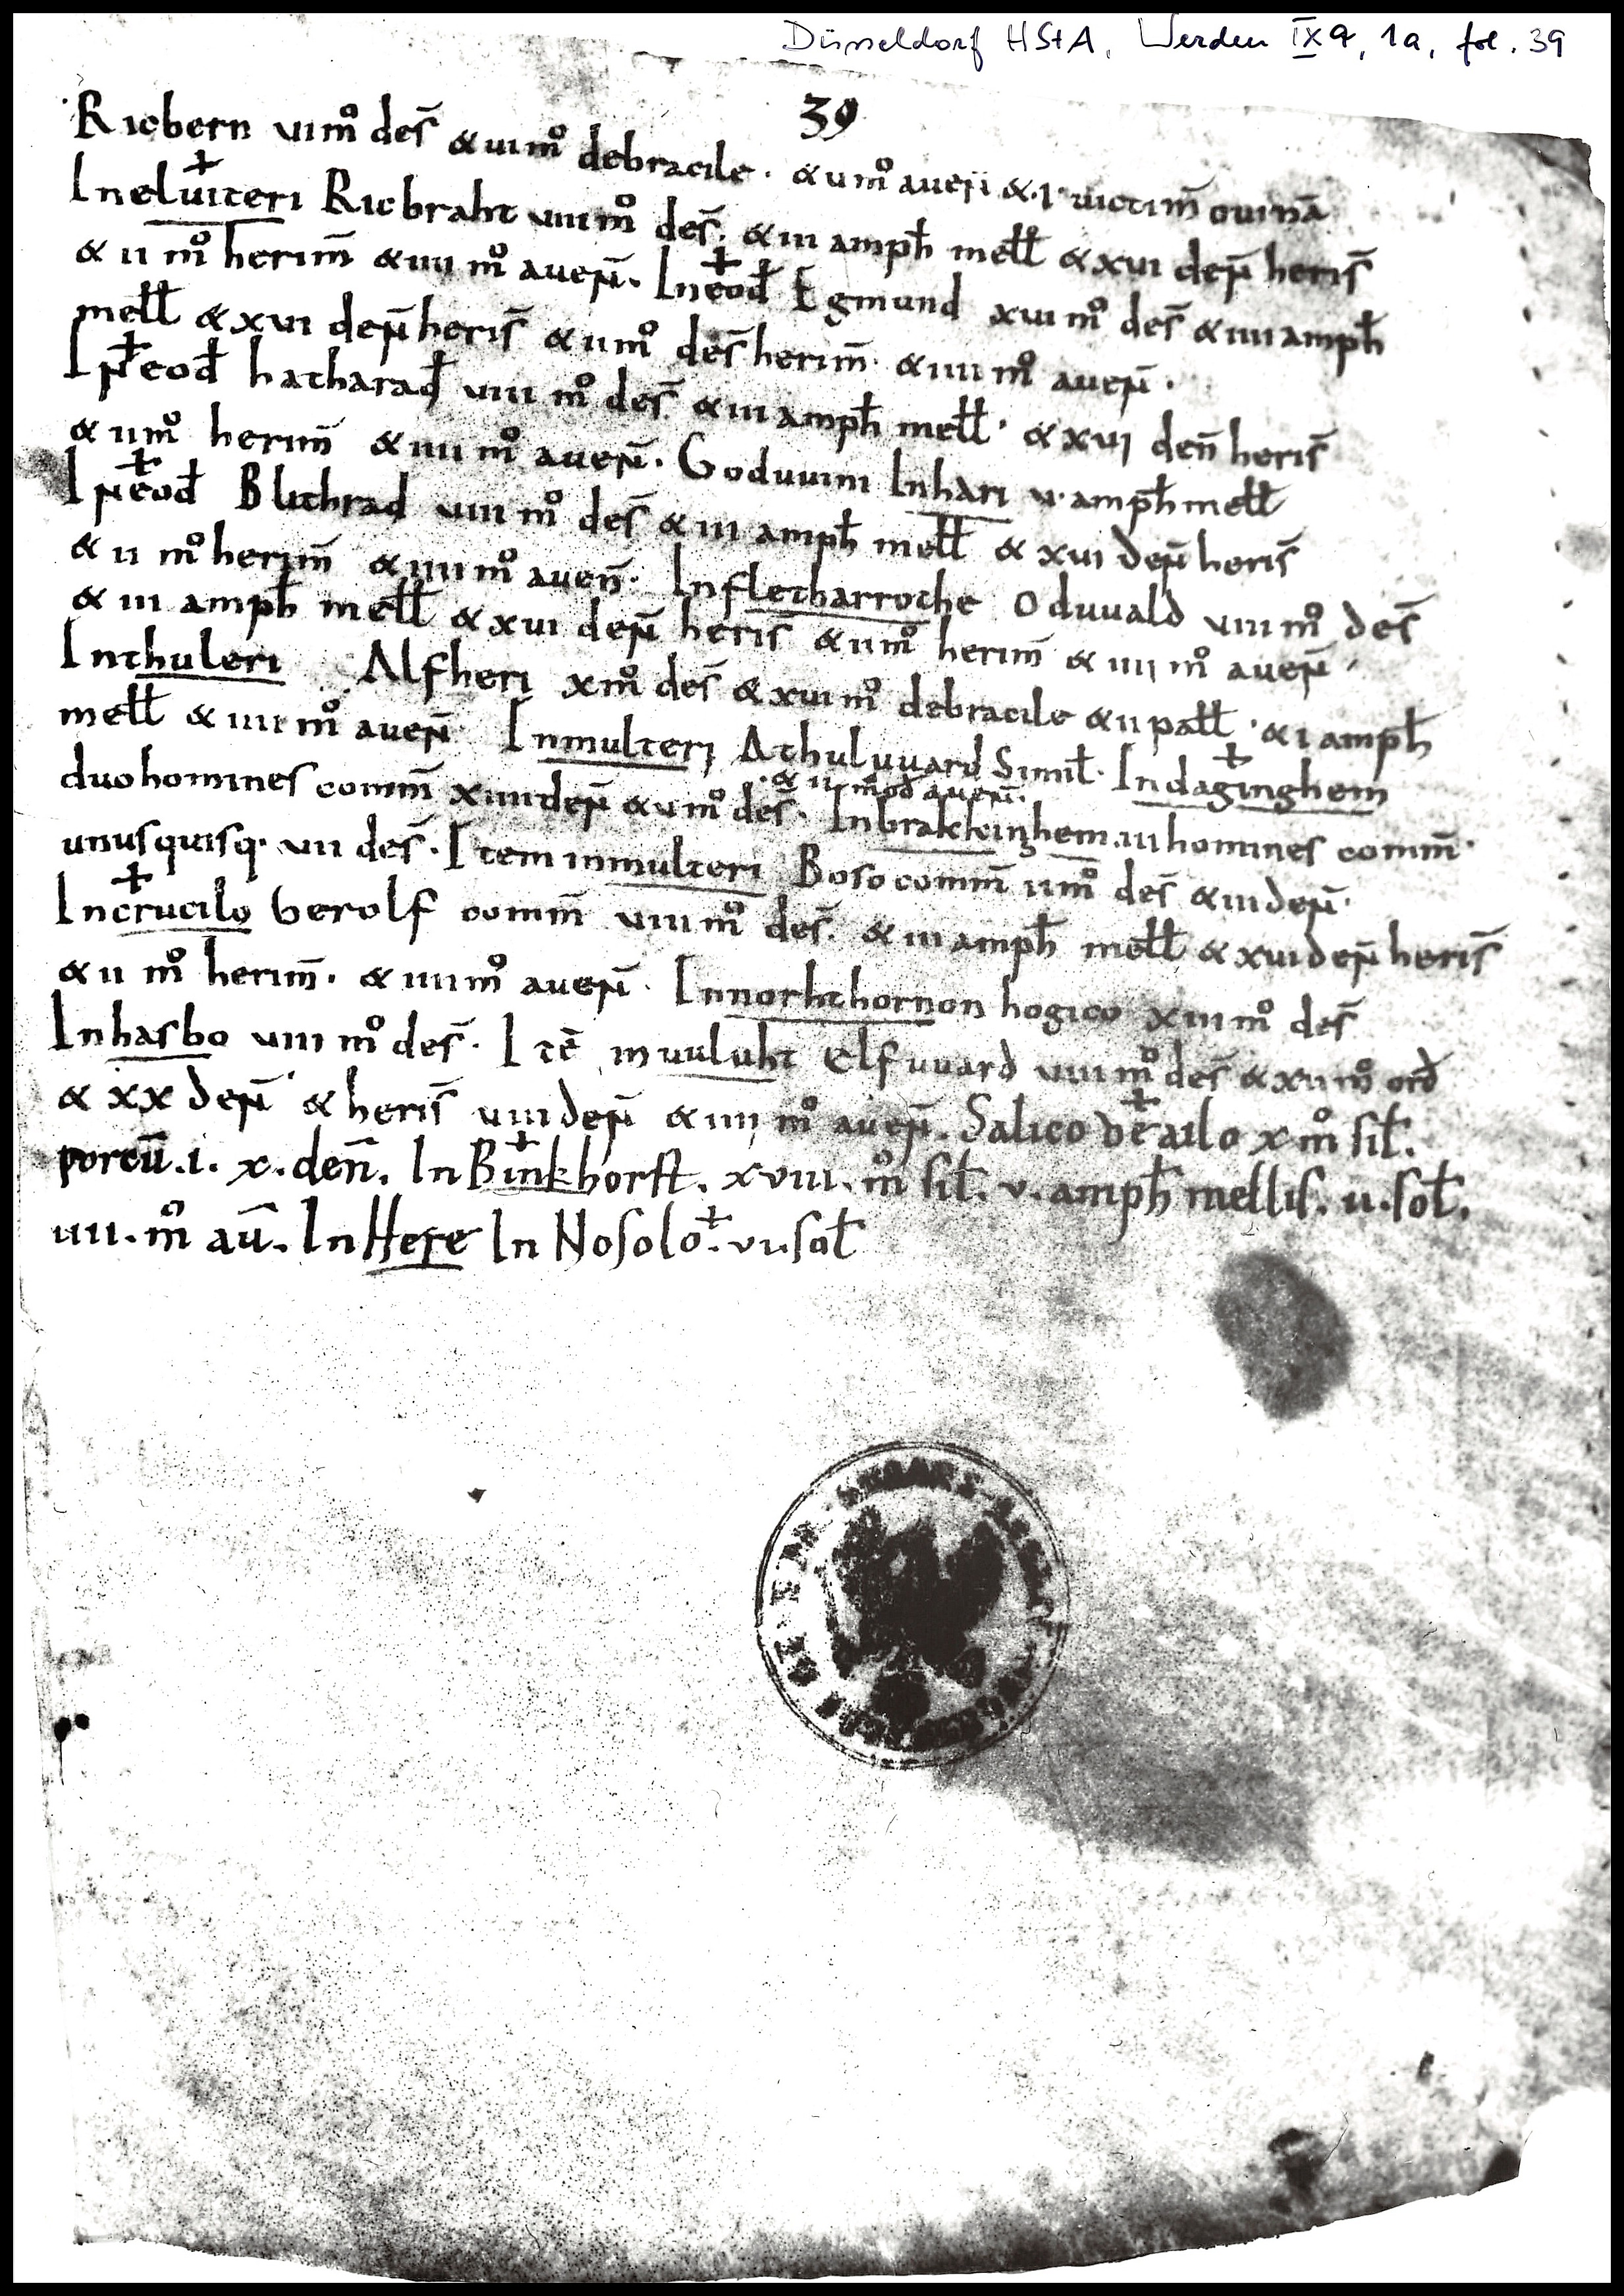 Düsseldorf HStA, Werden IX a, 1a, fol. 39
39
Ricbern vi mº des̄ & vii mº debracile. & u mº aueñ & ·I· uictim̄ ouinā
Inelviteri Ricbraht viii mº des̄. & iii amph̄ mell̄ & xvi deñ heris̄
& ii mº herim̄ & iiii mº aueñ. In eod̄ Egmund xvi mº des̄ & iiii amph̄
mell̄ & xvi deñ heris̄ & ii mº des̄ herim̄ & iiii mº aueñ.
In eod̄ hatharad viii mº des̄ & iii amph̄ mell̄ · & xvi deñ heris̄
& ii mº herim̄ & iiii mº aueñ. Goduuini Inhari v· amph̄ mell̄
In eod̄ Blithrad viii mº des̄ & iii amph̄ mell̄ & xvi deñ heris̄
& ii mº herim̄ & iiii mº aueñ. Infletharrothe Oduuald viii mº des̄
& iii amph̄ mell̄ & xvi deñ heris̄ & ii mº herim̄ & iiii mº aueñ ·
Inthuleri Alfheri x mº des̄ & xvi mº debracile & ii pall̄ · & i amph̄
mell̄ & iiii mº aueñ Inmulteri Athuluuard Simil̄. Indaginghem
duo homines comm̄ xiiii deñ & v mº des̄. Inbrakkinghem iii homines comm̄·
·& ii mod aueñ.
unusquisq· vii des̄. Item inmulteri Boso comm̄ ii mº des̄ & iii deñ·
Incrucilo Gerolf comm̄ viii mº des̄. & iii amph̄ mell̄ & xvi deñ heris̄
& ii mº herim̄. & iiii mº aueñ. Innorhthornon hogico xiii mº des̄
Inhasbo viii mº des̄. Itē in uuluht Elfuuard viii mº des̄ & xii mº ord̄
& xx deñ & heris̄ viii deñ & iiii mº aueñ. Salico de ailo x mº sil̄.
porcū.i. x. den̄. In Binkhorst. xviii. mº sil̄. v. amph̄ mellis. ii. sol̄.
iiii. mº aū. In Here In Nosolo. vi. sol̄